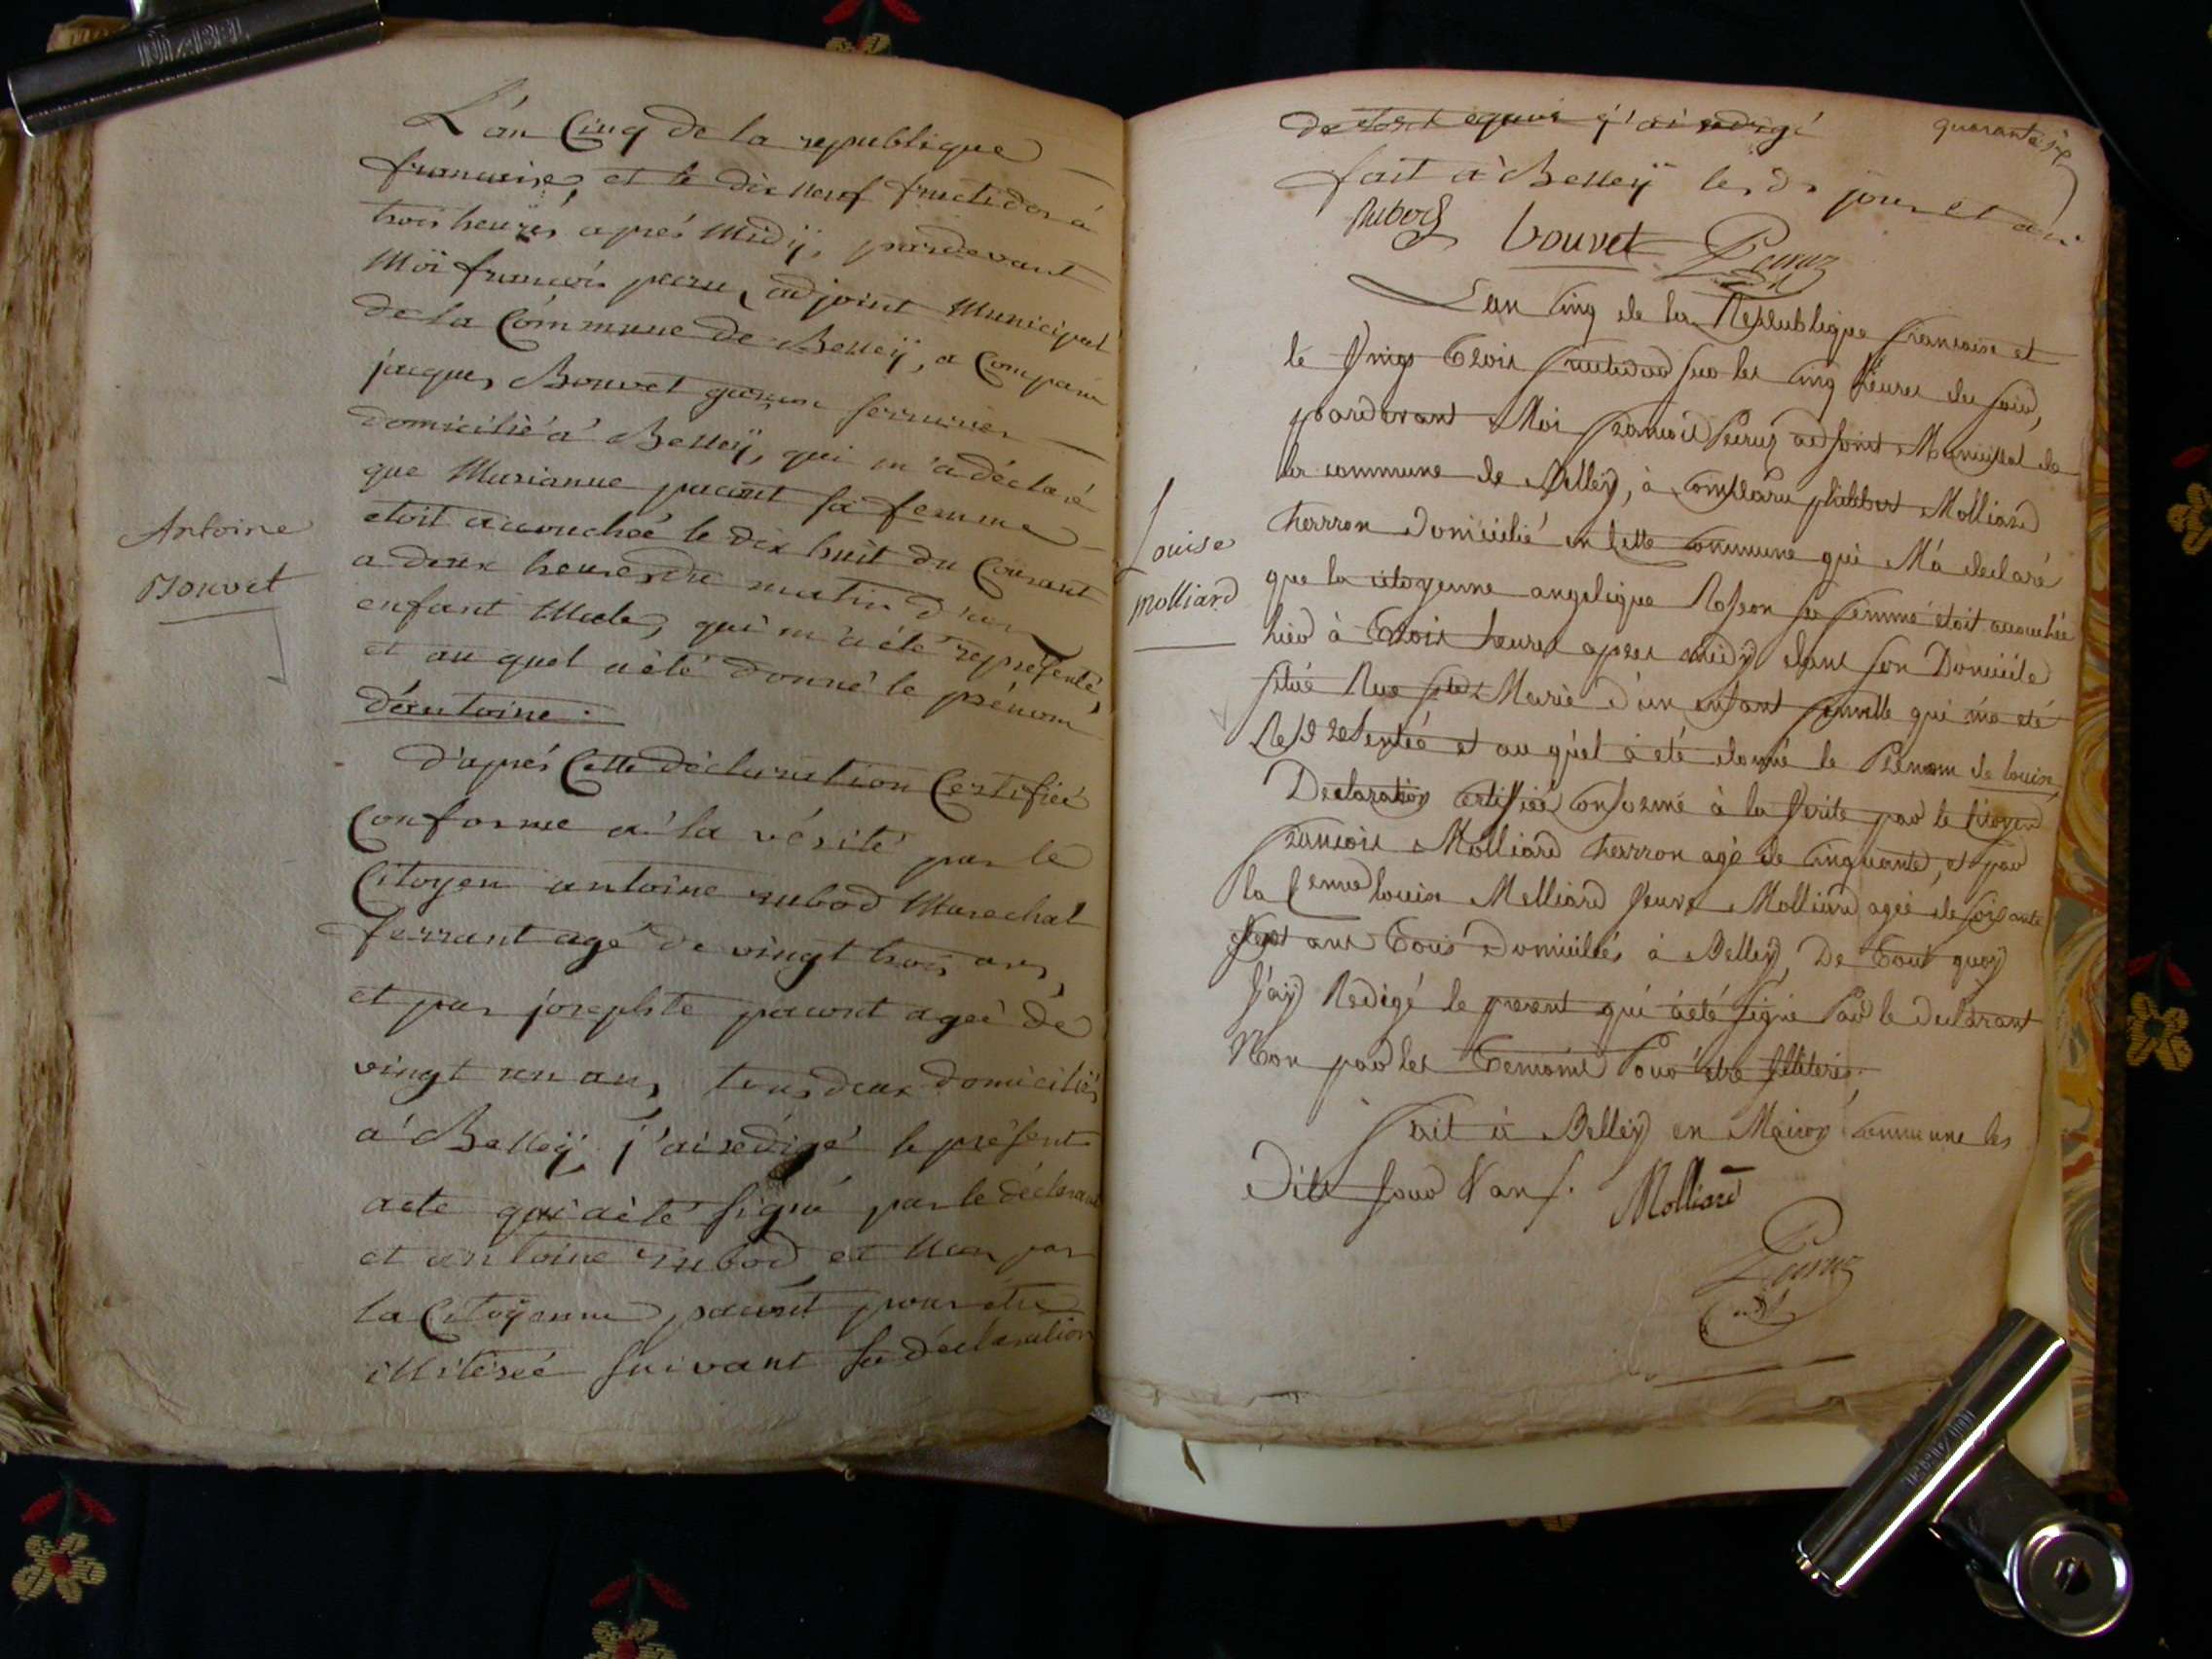 L'an Cinq de la republique
francaise, et le dix neuf fructidor à
trois heures aprés Midÿ, pardevant
Moi francois peru, adjoint Municipal
de la Commune de Belleÿ, a Comparu
jacques Bouvet garçon serrurier
domicilié a' Belleÿ, qui m'a déclaré
que Marianne pacout sa femme
etoit accouchée le dix huit du Courant
a deux heures du matin d'un
enfant Male, qui m'a été representé,
et au quel a été donné le prénom
d'antoine.
Antoine
Bouvet
d'aprés Cette déclaration Certifiée
Conforme a' la vérité par le
Citoyen antoine rubod Marechal
ferrant agé de vingt trois ans,
et par josephte pacout ageé de
vingt un ans, tous deux domiciliés
a' Belleÿ, j'ai redigé le présent
acte qui a été signé par le déclarant
et antoine rubod et Non par
la Citoÿenne pacout pour etre
illiterée suivant sa déclaration
quarante six
de tout quoi j'ai redigé
fait a' Belleÿ les ds jour et an
Rubod bouvet Peruz
adjt
L'an Cinq de la Republique francaise et
le Vingt Trois fructidor sur les Cinq heures du soir,
pardevant Moi francois Peruz adjoint Municipal de
la commune de Belleÿ, à Comparu philibert Molliard
charron Domicilié en Cette Commune qui M'a declaré
que la citoyenne angelique Rosson sa femme étoit accouchée
hier à Trois heures apres midÿ dans son Domicile
situé Rue ste Marie d'un enfant femelle qui ma eté
Representée et au quel a eté donné le Prenom de louise,
Louise
Molliard
Declaration certifiée Conforme à la Verite par le Citoyen
francois Molliard charron agé de Cinquante, et par
la louise Melliard Veuve Molliard ageé de soixante
Sept ans Tous Domiciliés à Belleÿ, De Tout quoy
J'aÿ Redigé le present qui a été signé Par le declarant
Non par les Temoins Pour être illiterés.
fait à Belleÿ en Maison Commune les
Dits Jour & an. Molliard
Peruz
adjt